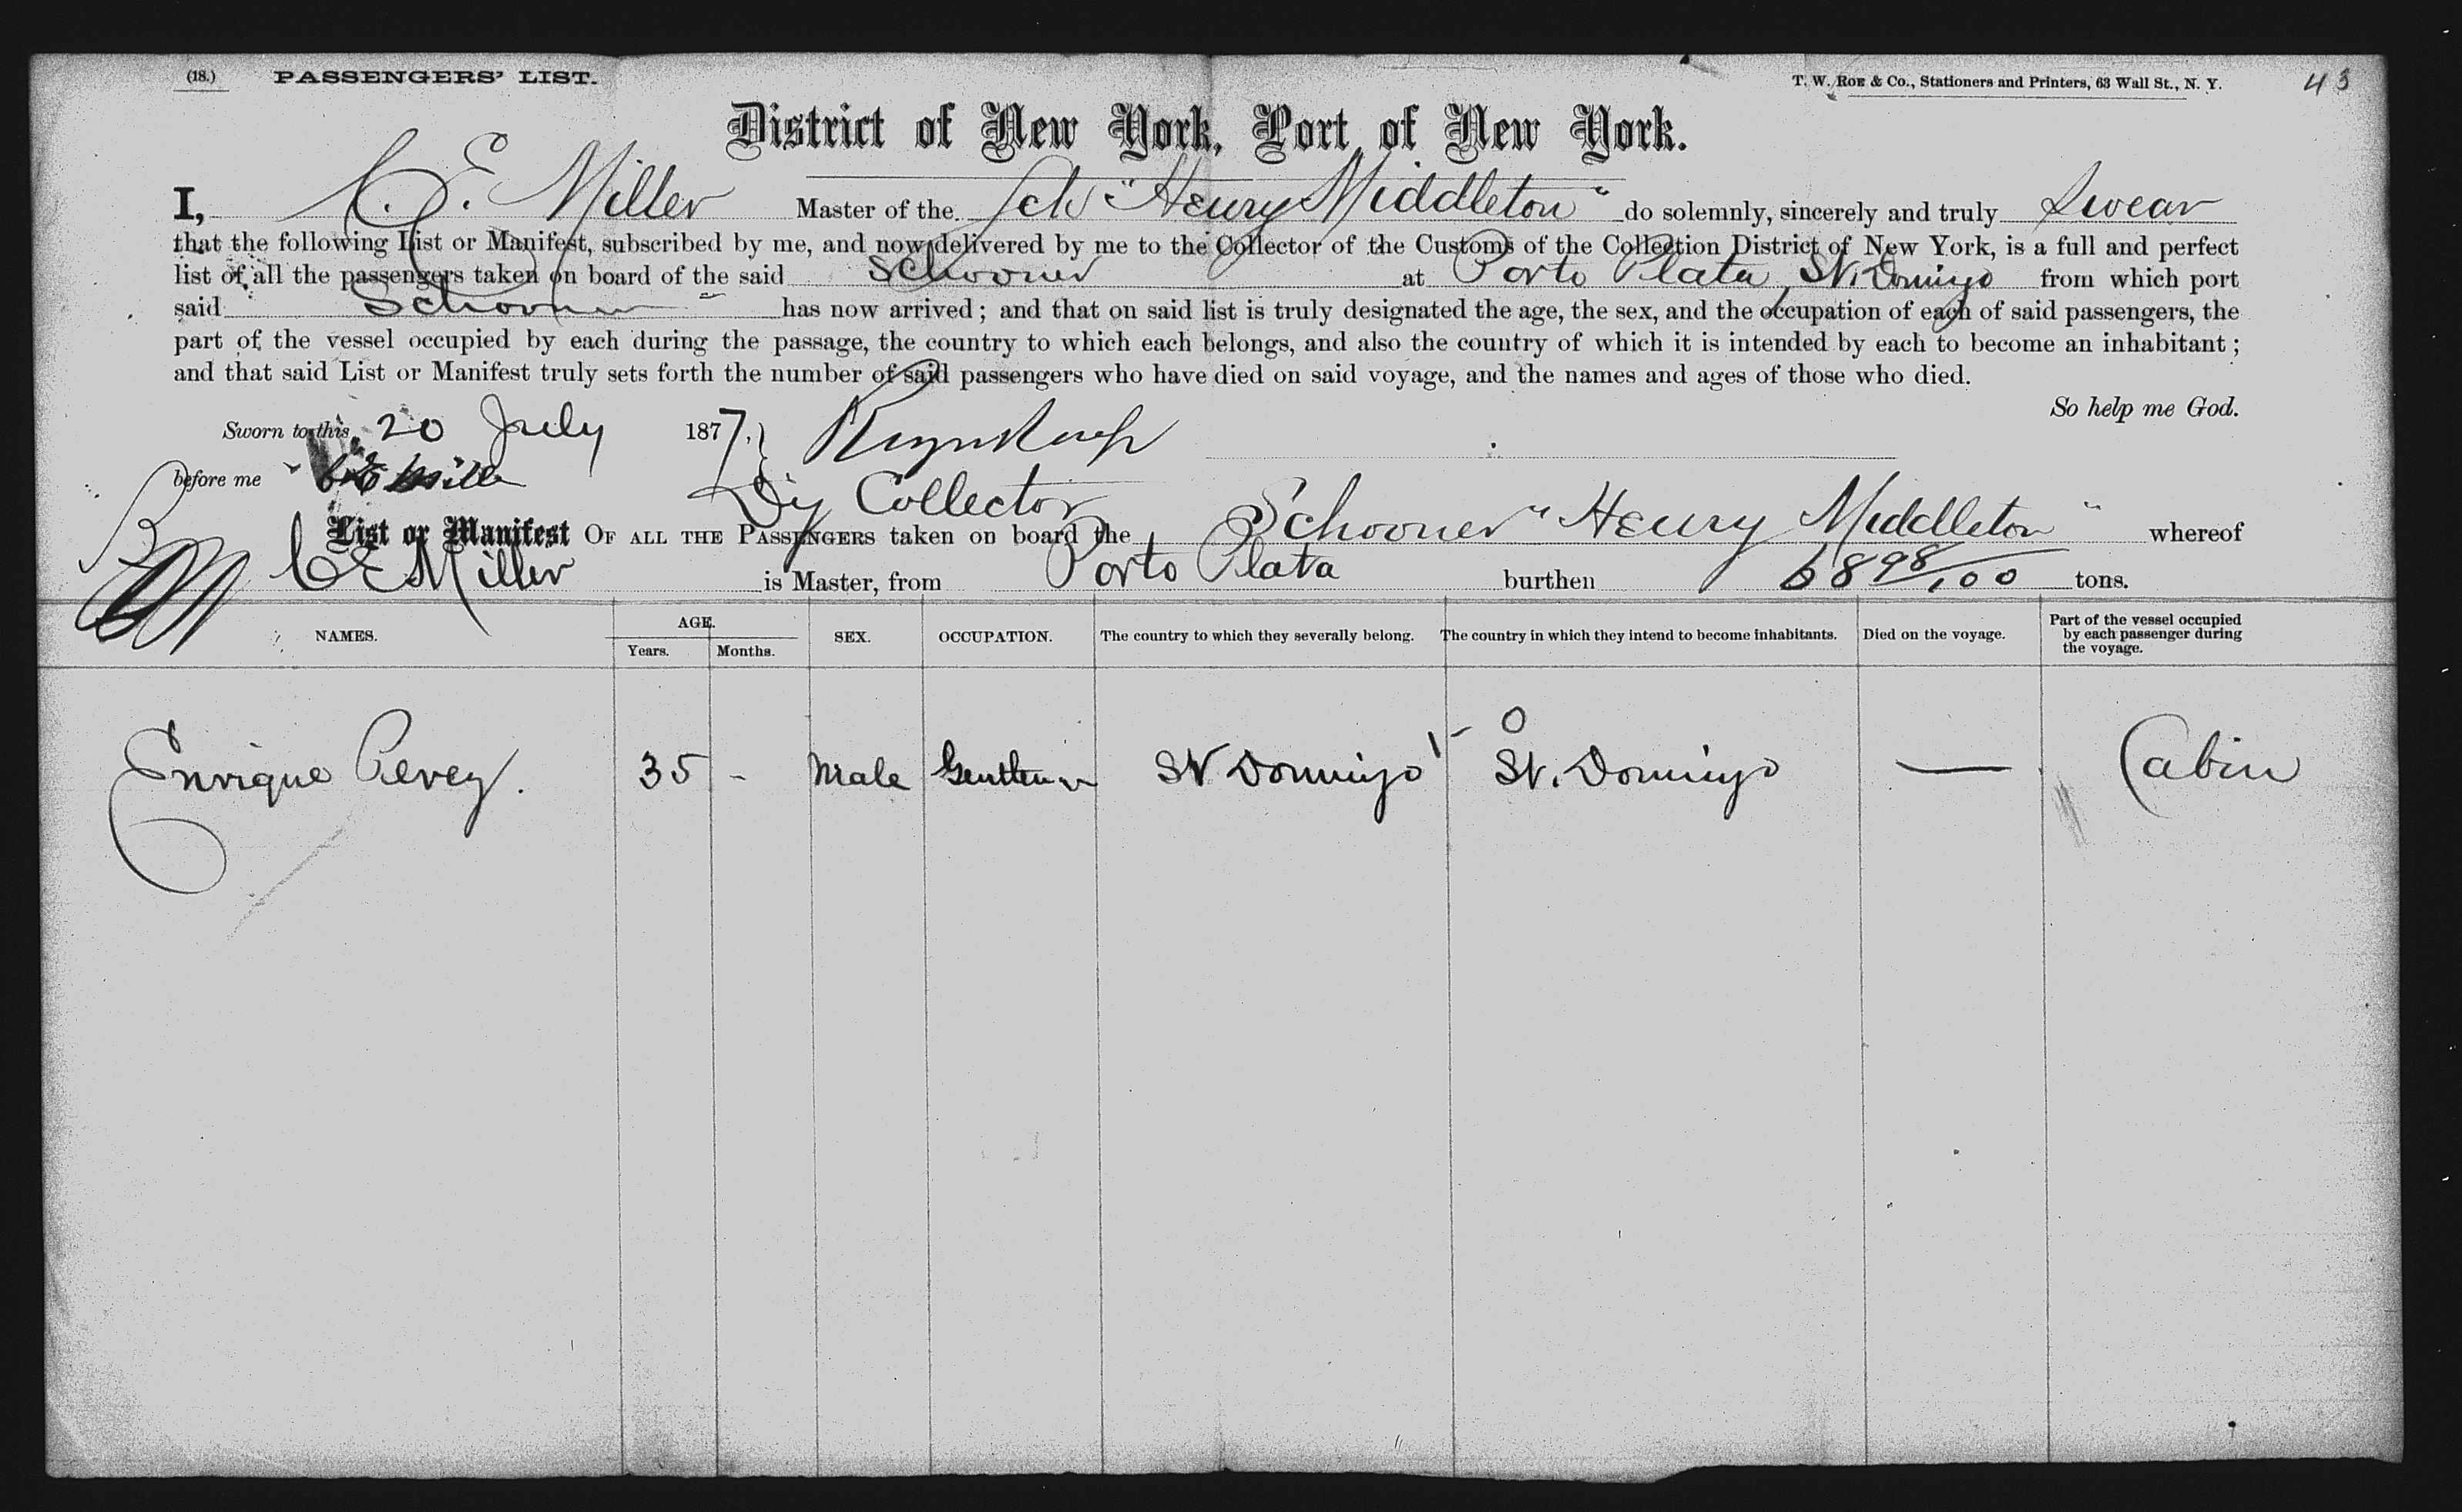 (18.) PASSENGERS' LIST. T. W. Roe & Co., Stationers and Printers, 63 Wall St., N. Y. 43
District of New York, Port of New York.
I, C. E. Miller Master of the Sch "Henry Middleton" do solemnly, sincerely and truly Swear
that the following List or Manifest, subscribed by me, and now delivered by me to the Collector of the Customs of the Collection District of New York, is a full and perfect
list of all the passengers taken on board of the said Schooner at Porto Plata, St. Domingo from which port
said Schooner has now arrived; and that on said list is truly designated the age, the sex, and the occupation of each of said passengers, the
part of the vessel occupied by each during the passage, the country to which each belongs, and also the country of which it is intended by each to become an inhabitant;
and that said List or Manifest truly sets forth the number of said passengers who have died on said voyage, and the names and ages of those who died.
So help me God.
Sworn to this 20 July 1877,
before me C E Miller
Dy Collector
List or Manifest OF ALL THE PASSENGERS taken on board the Schooner "Henry Middleton" whereof
C E Miller is Master, from Porto Plata burthen 68 98/100 tons.
NAMES. AGE. Years. Months. SEX. OCCUPATION. The country to which they severally belong. The country in which they intend to become inhabitants. Died on the voyage. Part of the vessel occupied by each passenger during the voyage.
Enrique 35 - Male Gentleman St Domingo St. Domingo — Cabin